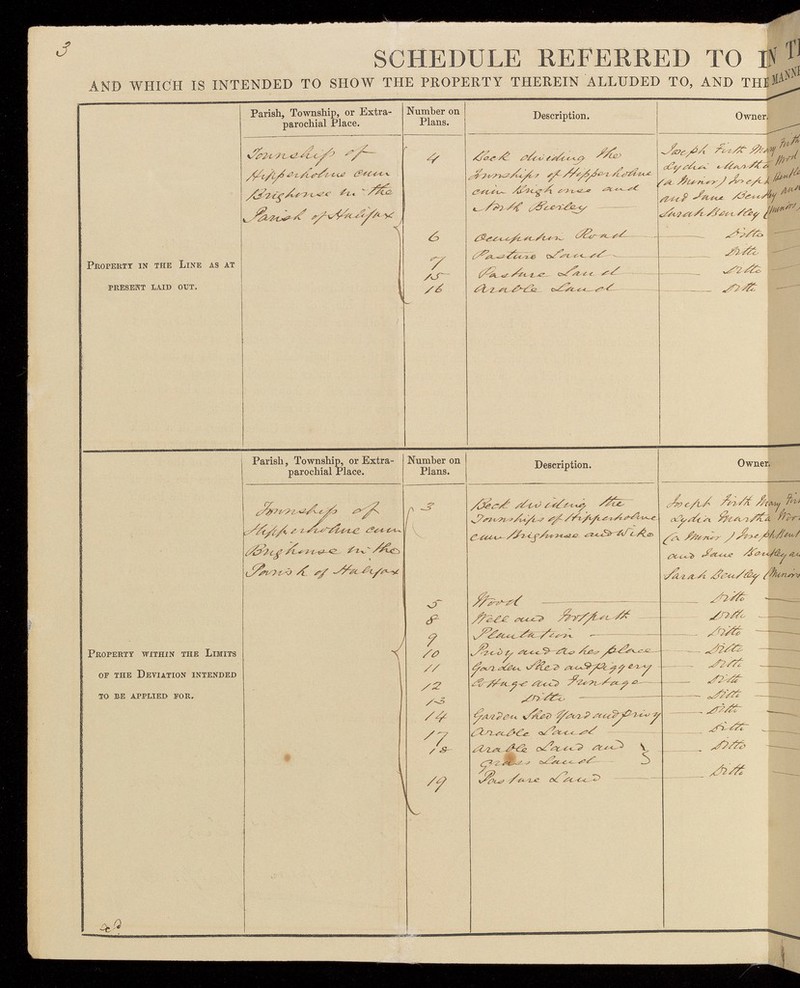 3
SCHEDULE REFERRED TO IN
AND WHICH IS INTENDED TO SHOW THE PROPERTY THEREIN ALLUDED TO, AND THE MANNE
Parish, Township, or Extra-
parochial Place.
Number on
Plans.
Description.
Owner
Property in the Line as at
present laid out.
Township of
Hipperholme cum
Brighouse in the
Parish of Halifax
4 Beck dividing the
Townships of Hipperholme
cum Brighouse and
North Bierley
Joseph Firth Mary Firth
Lydia Martha Wood
(a Minor) Joseph Bentley
and Jane Bentley and
Sarah Bentley (Minors)
6 Occupation Road Ditto
7 Pasture Land Ditto
15 Pasture Land Ditto
16 Arable Land Ditto
Parish, Township, or Extra-
parochial Place.
Number on
Plans.
Description.
Owner
Property within the Limits
of the Deviation intended
to be applied for.
Township of
Hipperholme cum
Brighouse in the
Parish of Halifax
3 Beck dividing the
Townships of Hipperholme
cum Brighouse and Wike
Joseph Firth Mary Fir
Lydia Martha Woo
(a Minor) Joseph Bent
and Jane Bentley an
Sarah Bentley (Minors
5 Wood Ditto
8 Well and Footpath Ditto
9 Plantation Ditto
10 Privy and Ashes place Ditto
11 Garden Shed and Piggery Ditto
12 Cottage and Frontage Ditto
13 Ditto Ditto
14 Garden Shed Yard and Privy Ditto
17 Arable Land Ditto
18 Arable Land and
Grass Land Ditto
19 Pasture Land Ditto